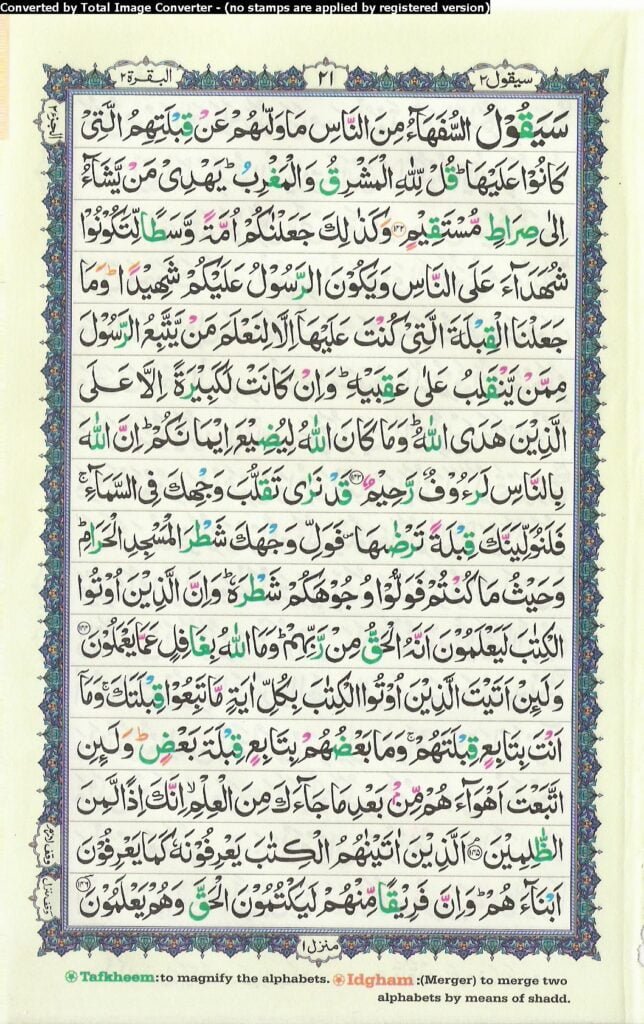 Converted by Total Image Converter - (no stamps are applied by registered version)
سيقول ٢
٢١
البقرة ٢
الجزء ٢
سَيَقُوْلُ السُّفَهَآءُ مِنَ النَّاسِ مَا وَلّٰىهُمْ عَنْ قِبْلَتِهِمُ الَّتِیْ
كَانُوْا عَلَيْهَا ؕ قُلْ لِّلّٰهِ الْمَشْرِقُ وَالْمَغْرِبُ ؕ يَهْدِیْ مَنْ يَّشَآءُ
اِلٰی صِرَاطٍ مُّسْتَقِيْمٍ ﴿١٤٢﴾ وَكَذٰلِكَ جَعَلْنٰكُمْ اُمَّةً وَّسَطًا لِّتَكُوْنُوْا
شُهَدَآءَ عَلَی النَّاسِ وَيَكُوْنَ الرَّسُوْلُ عَلَيْكُمْ شَهِيْدًا ؕ وَمَا
جَعَلْنَا الْقِبْلَةَ الَّتِیْ كُنْتَ عَلَيْهَآ اِلَّا لِنَعْلَمَ مَنْ يَّتَّبِعُ الرَّسُوْلَ
مِمَّنْ يَّنْقَلِبُ عَلٰی عَقِبَيْهِ ؕ وَاِنْ كَانَتْ لَكَبِيْرَةً اِلَّا عَلَی
الَّذِيْنَ هَدَی اللّٰهُ ؕ وَمَا كَانَ اللّٰهُ لِيُضِيْعَ اِيْمَانَكُمْ ؕ اِنَّ اللّٰهَ
بِالنَّاسِ لَرَءُوْفٌ رَّحِيْمٌ ﴿١٤٣﴾ قَدْ نَرٰی تَقَلُّبَ وَجْهِكَ فِی السَّمَآءِ ۚ
فَلَنُوَلِّيَنَّكَ قِبْلَةً تَرْضٰىهَا ۪ فَوَلِّ وَجْهَكَ شَطْرَ الْمَسْجِدِ الْحَرَامِ ؕ
وَحَيْثُ مَا كُنْتُمْ فَوَلُّوْا وُجُوْهَكُمْ شَطْرَهٗ ؕ وَاِنَّ الَّذِيْنَ اُوْتُوا
الْكِتٰبَ لَيَعْلَمُوْنَ اَنَّهُ الْحَقُّ مِنْ رَّبِّهِمْ ؕ وَمَا اللّٰهُ بِغَافِلٍ عَمَّا يَعْمَلُوْنَ ﴿١٤٤﴾
وَلَئِنْ اَتَيْتَ الَّذِيْنَ اُوْتُوا الْكِتٰبَ بِكُلِّ اٰيَةٍ مَّا تَبِعُوْا قِبْلَتَكَ ۚ وَمَآ
اَنْتَ بِتَابِعٍ قِبْلَتَهُمْ ۚ وَمَا بَعْضُهُمْ بِتَابِعٍ قِبْلَةَ بَعْضٍ ؕ وَلَئِنِ
اتَّبَعْتَ اَهْوَآءَهُمْ مِّنْۢ بَعْدِ مَا جَآءَكَ مِنَ الْعِلْمِ ۙ اِنَّكَ اِذًا لَّمِنَ
الظّٰلِمِيْنَ ﴿١٤٥﴾ اَلَّذِيْنَ اٰتَيْنٰهُمُ الْكِتٰبَ يَعْرِفُوْنَهٗ كَمَا يَعْرِفُوْنَ
اَبْنَآءَهُمْ ؕ وَاِنَّ فَرِيْقًا مِّنْهُمْ لَيَكْتُمُوْنَ الْحَقَّ وَهُمْ يَعْلَمُوْنَ ﴿١٤٦﴾
منزل ١
Tafkheem:to magnify the alphabets. Idgham :(Merger) to merge two
alphabets by means of shadd.